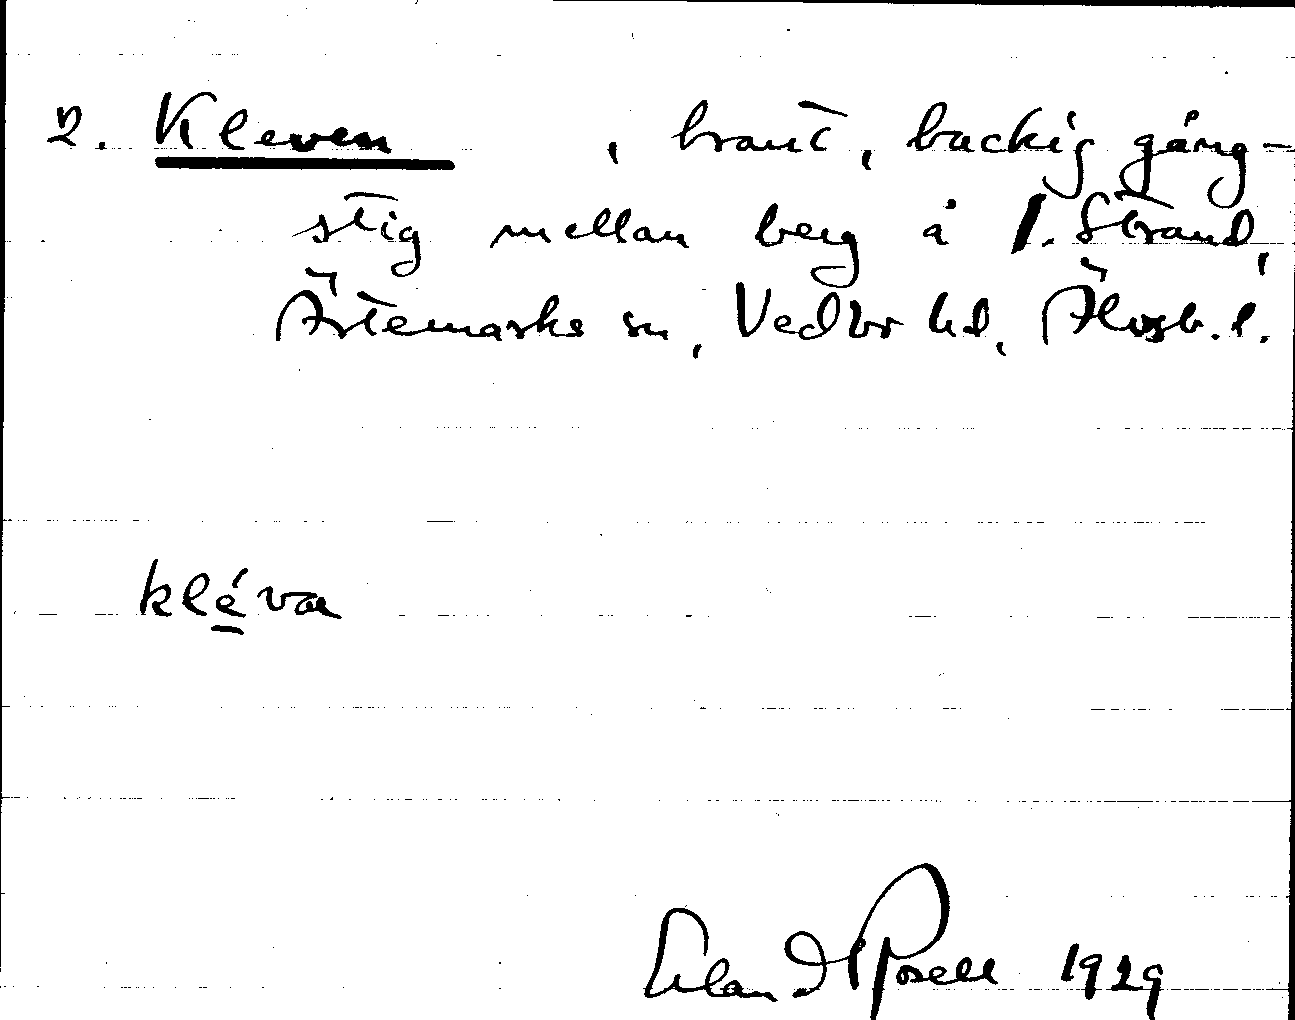 2. Kleven, brant, backig gång-
stig mellan berg å 1. Strand,
Ärtemarks sn, Vedbo hd, Älvsb. l.
kléva
Erland Rosell 1929